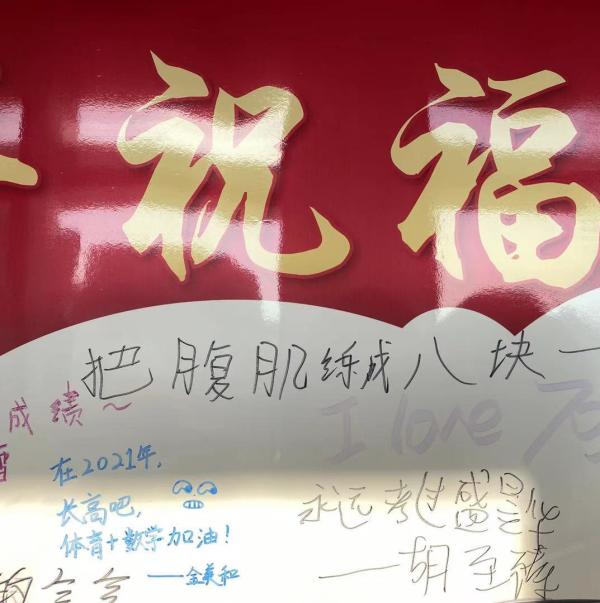 祝福
把腹肌练成八块一
成绩~
I love
在2021年,
长高吧,
体育+数学加油!
——金美和
永远考过盛昱华
——胡至臻